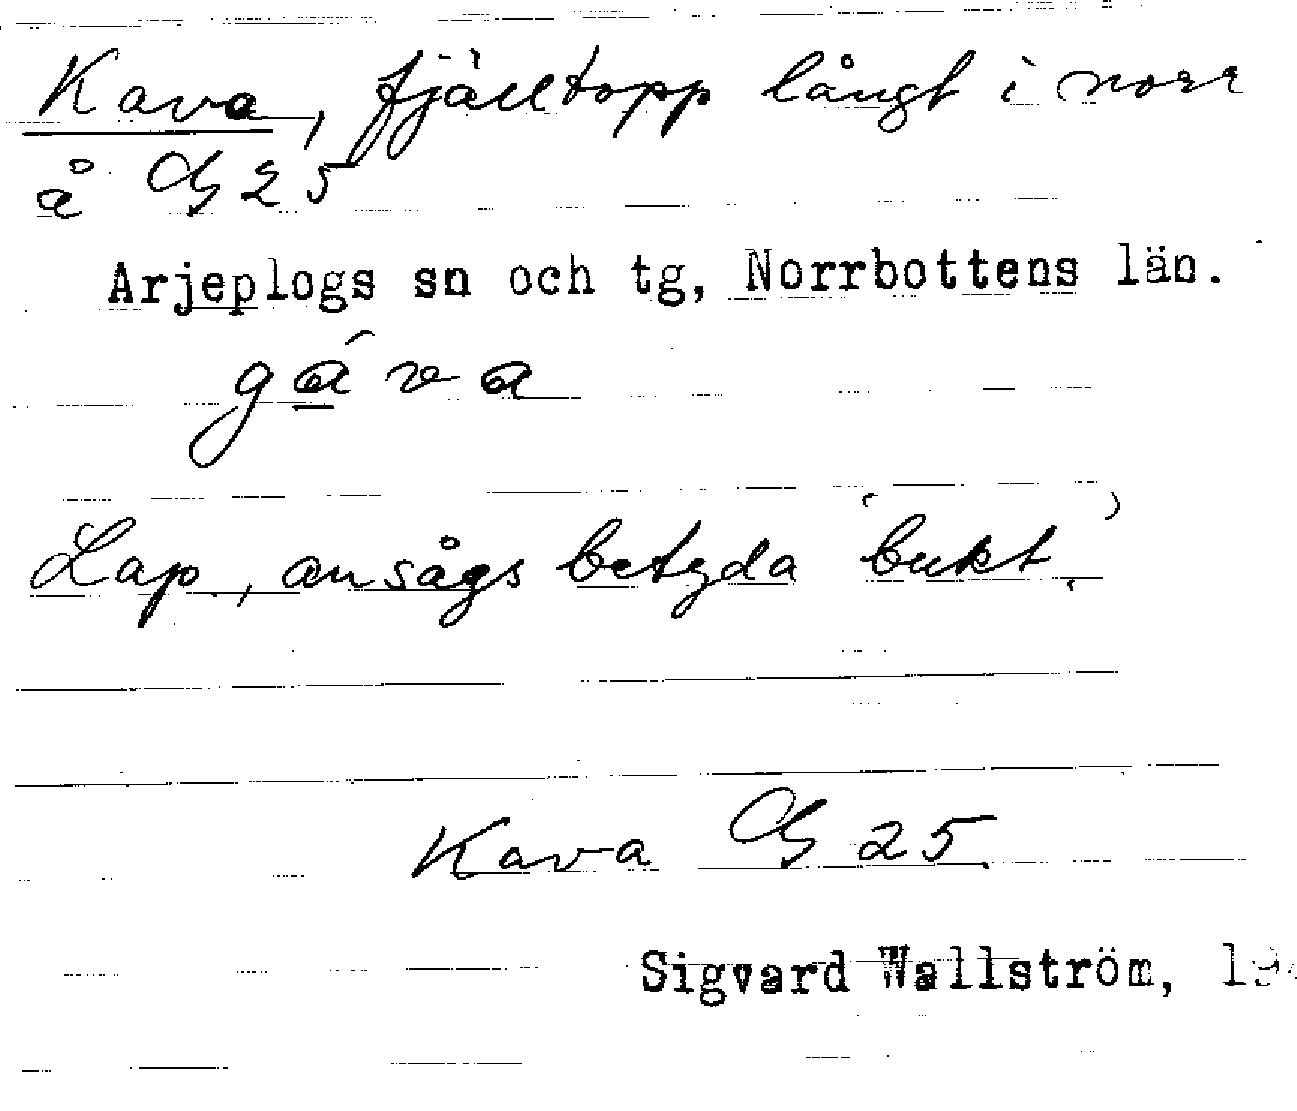 Kava, fjälltopp långt i norr
å G 25
Arjeplogs sn och tg, Norrbottens län.
gá̱va
Lap., ansågs betyda 'bukt.'
Kava G 25
Sigvard Wallström, 194